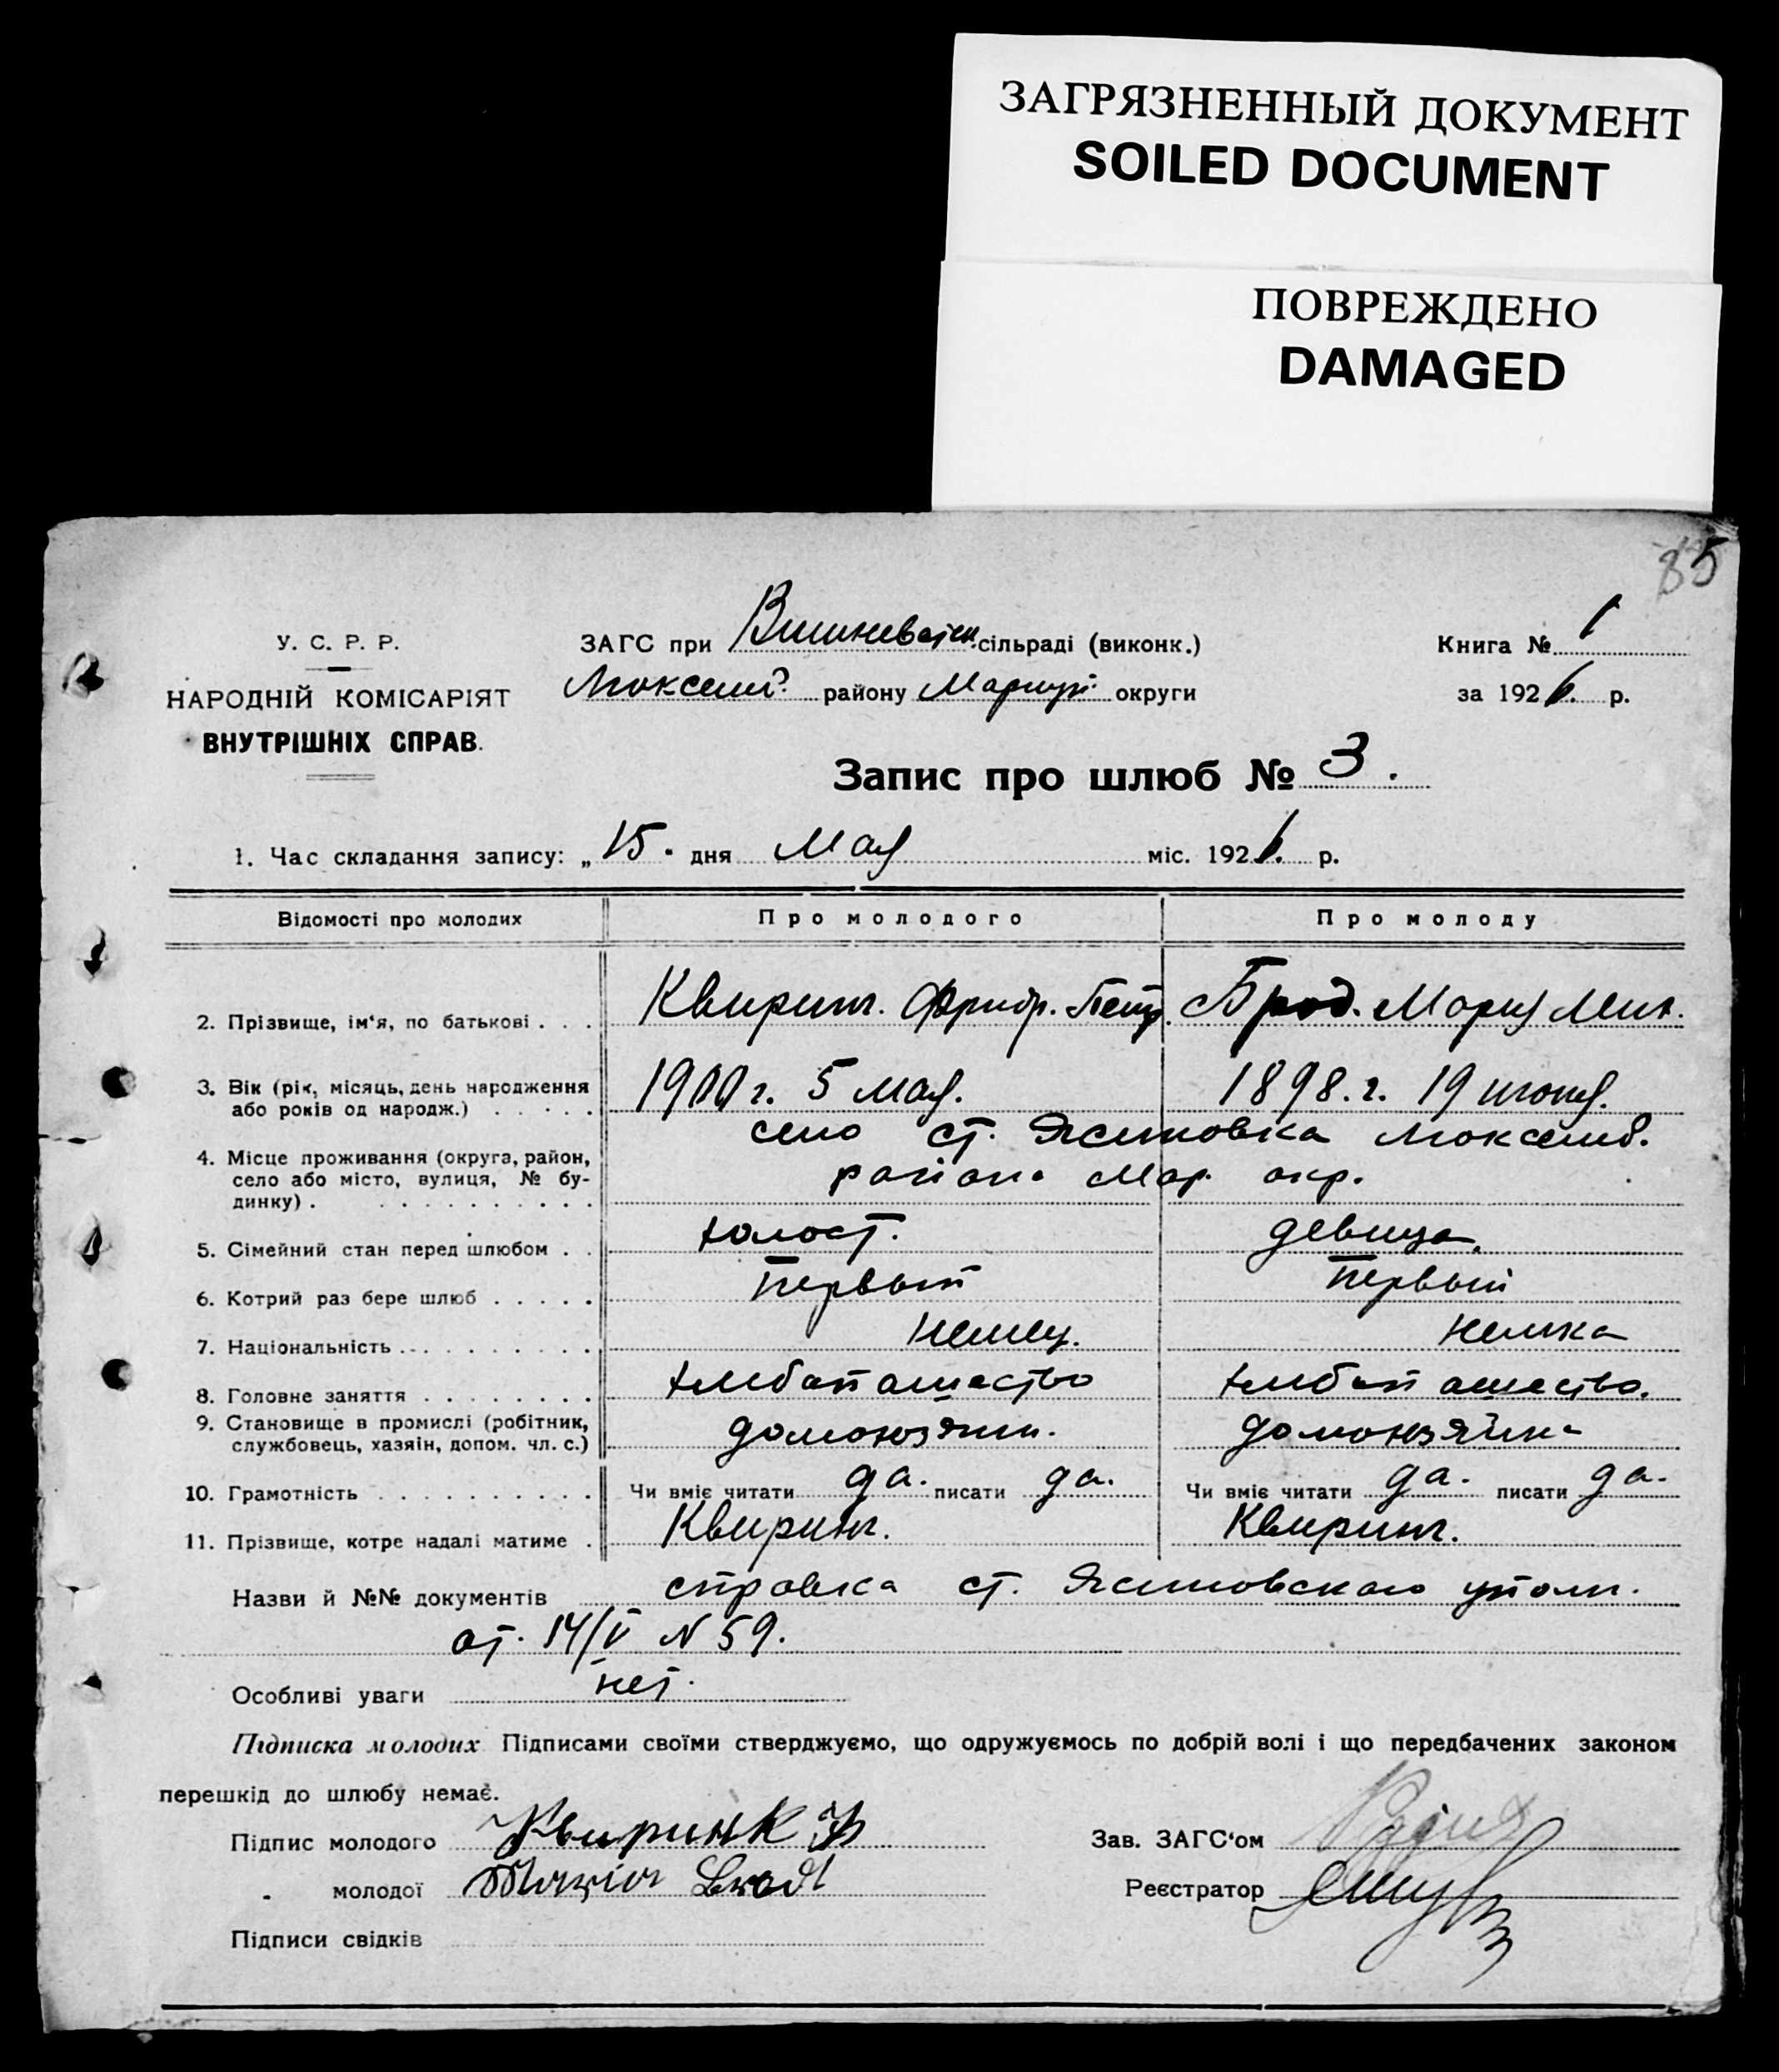 ЗАГРЯЗНЕННЫЙ ДОКУМЕНТ
SOILED DOCUMENT
ПОВРЕЖДЕНО
DAMAGED
85
У. С. Р. Р.
НАРОДНІЙ КОМІСАРІЯТ
ВНУТРІШНІХ СПРАВ.
ЗАГС при Вишневатск. сільраді (виконк.)
району Мариуп. округи
Книга № 1
за 1926. р.
Запис про шлюб № 3.
1. Час складання запису: „15" дня Мая міс. 1926. р.
Відомості про молодих Про молодого Про молоду
2. Прізвище, ім‘я, по батькові . . . Квиринг. Фридр. Петр. Брод. Мария Мих.
3. Вік (рік, місяць, день народження 1900 г. 5 мая. 1898. г. 19 июня.
або років од народж.) . . . . .
село ст. Ясиновка Люксемб.
4. Місце проживання (округа, район,
село або місто, вулиця, № бу- района Мар. окр.
динку) . . . . . . . . . . .
5. Сімейний стан перед шлюбом . . холост. девица.
6. Котрий раз бере шлюб . . . . . Первый Первый
7. Національність . . . . . . . . . . немец. немка
8. Головне заняття . . . . . . . . хлебопашество хлебопашество.
9. Становище в промислі (робітник,
службовець, хазяін, допом. чл. с.) домохозяин. домохозяйка
10. Грамотність . . . . . . . . . . Чи вміє читати да. писати да. Чи вміє читати да. писати да.
11. Прізвище, котре надалі матиме . Квиринг. Квиринг.
Назви й №№ документів справка ст. Ясиновского уполн.
от. 14/V N 59.
Особливі уваги нет.
Підписка молодих Підписами своїми стверджуємо, що одружуємось по добрій волі і що передбачених законом
перешкід до шлюбу немає.
Підпис молодого Квиринк Ф
„ молодої Maria Brodt
Підписи свідків
Зав. ЗАГС‘ом
Реєстратор